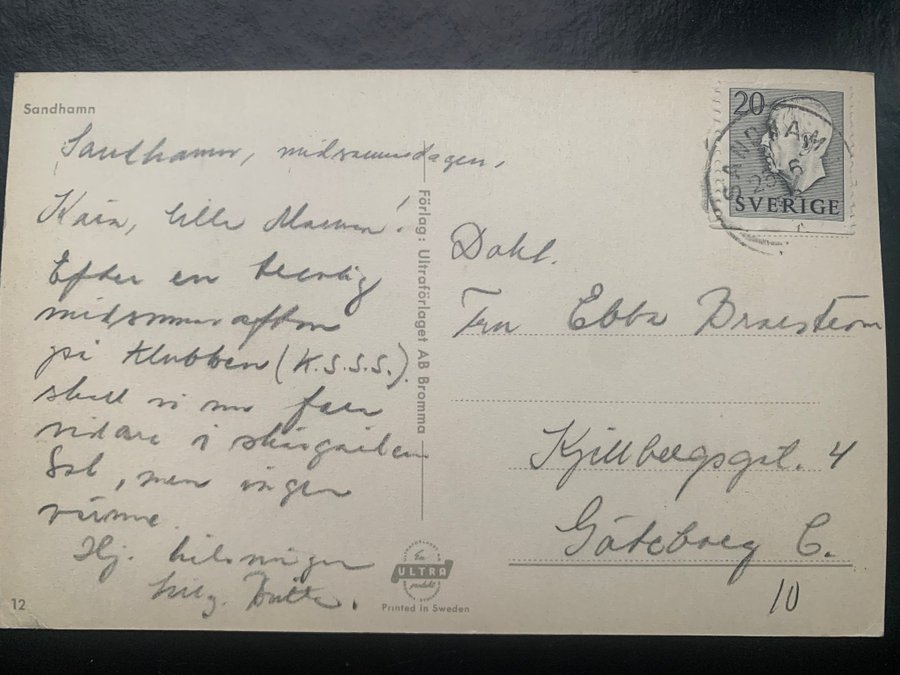 Sandhamn
Sandhamn, midsommardagen.
Kära, lilla Mamma!
Efter en trevlig
midsommarafton
på Klubben (K.S.S.S.).
skall vi nu fara
vidare i skärgården
Sol, men ingen
värme.
Hj. hälsningar
12
Förlag: Ultraförlaget AB Bromma
En
ULTRA
produkt
Printed in Sweden
20
SANDHAMN
SVERIGE
Fru Ebba
Göteborg C.
4
10